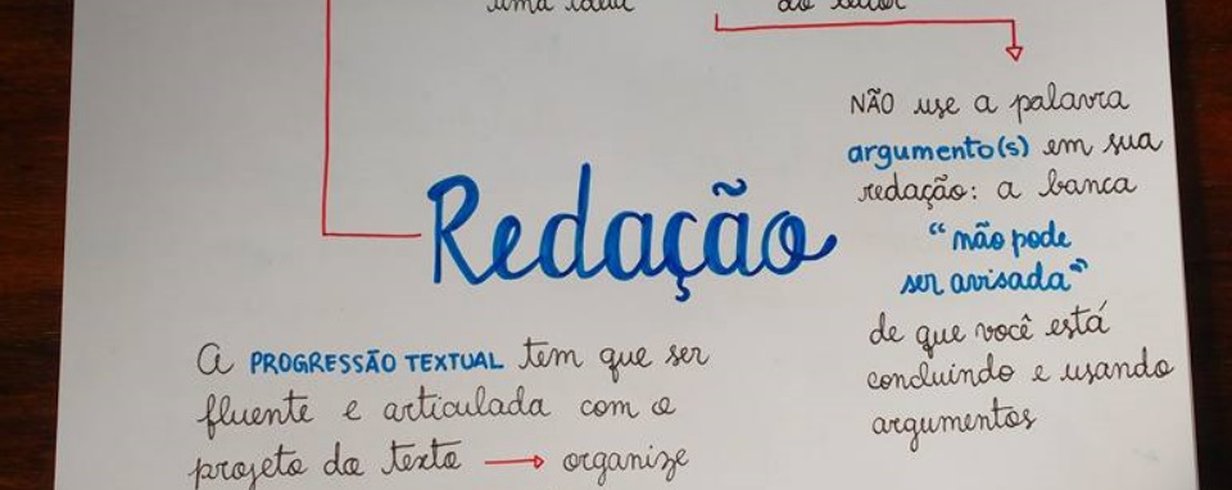 uma ideia
do leitor
NÃO use a palavra
argumento(s) em sua
redação: a banca
"não pode
ser avisada"
de que você está
concluindo e usando
argumentos
Redação
A PROGRESSÃO TEXTUAL tem que ser
fluente e articulada com o
projeto do texto → organize